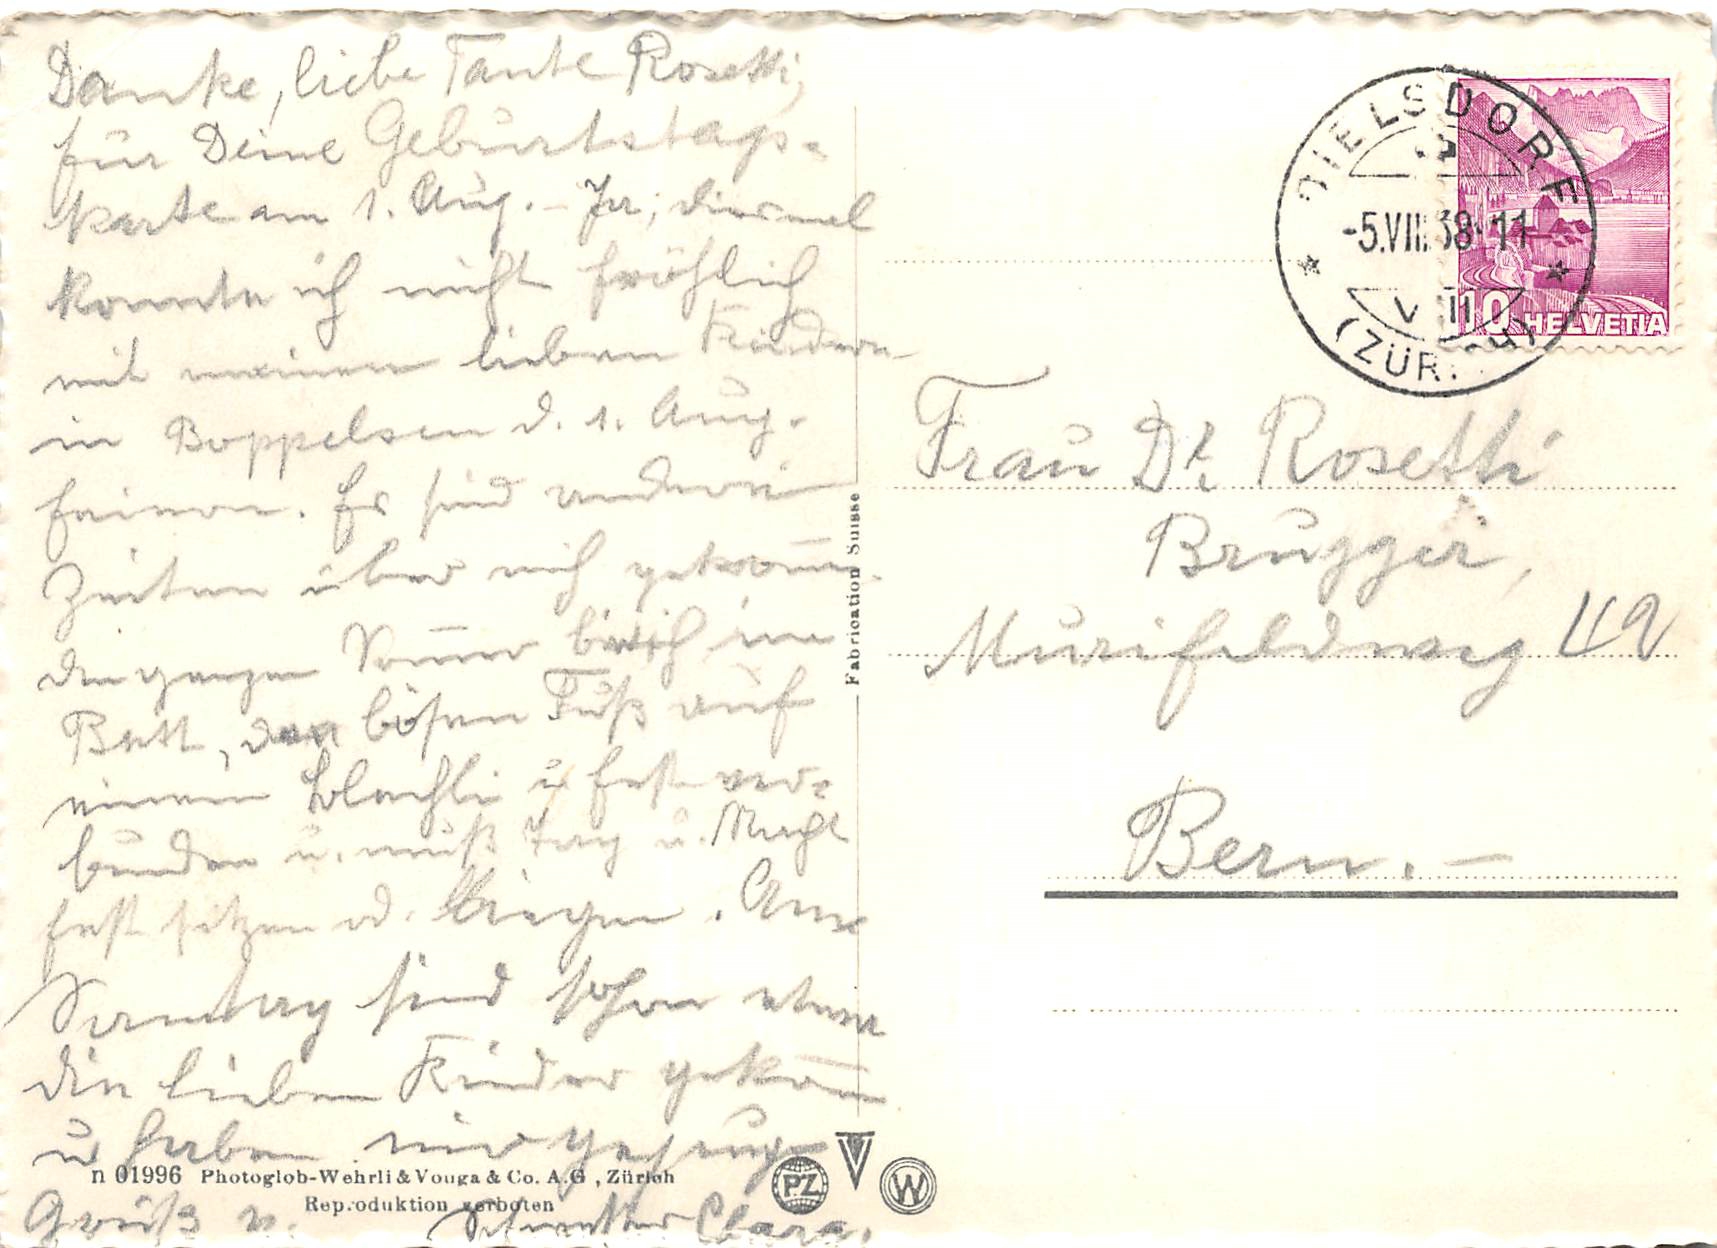 Danke, liebe Tante Rosetti,
für Deine Geburtstags=
karte am 1. Aug. – Ja, diesmal
konnte ich nicht fröhlich
mit meinen lieben Kindern
in Boppelsen d. 1. Aug.
feiern. Es sind andere
Zeiten über mich gekom̅en.
den ganzen Som̅er bin ich im
Bett, den bösen Fuß auf
einem u fest ver=
bunden u. muß Tag u. Nacht
fest sitzen od. liegen. Am
Sonntag sind schon etwa
die lieben Kinder gekom̅en
u haben mir
Gruß v. Schwester Clara.
DIELSDORF
-5.VIII.38-11
(ZÜRICH)
10 HELVETIA
Frau Dr. Rosetti
Brugger,
Murifeldweg
Bern. –
Fabrication Suisse
n 01996 Photoglob-Wehrli & Vouga & Co. A.G., Zürich
Reproduktion verboten
PZ
V
W